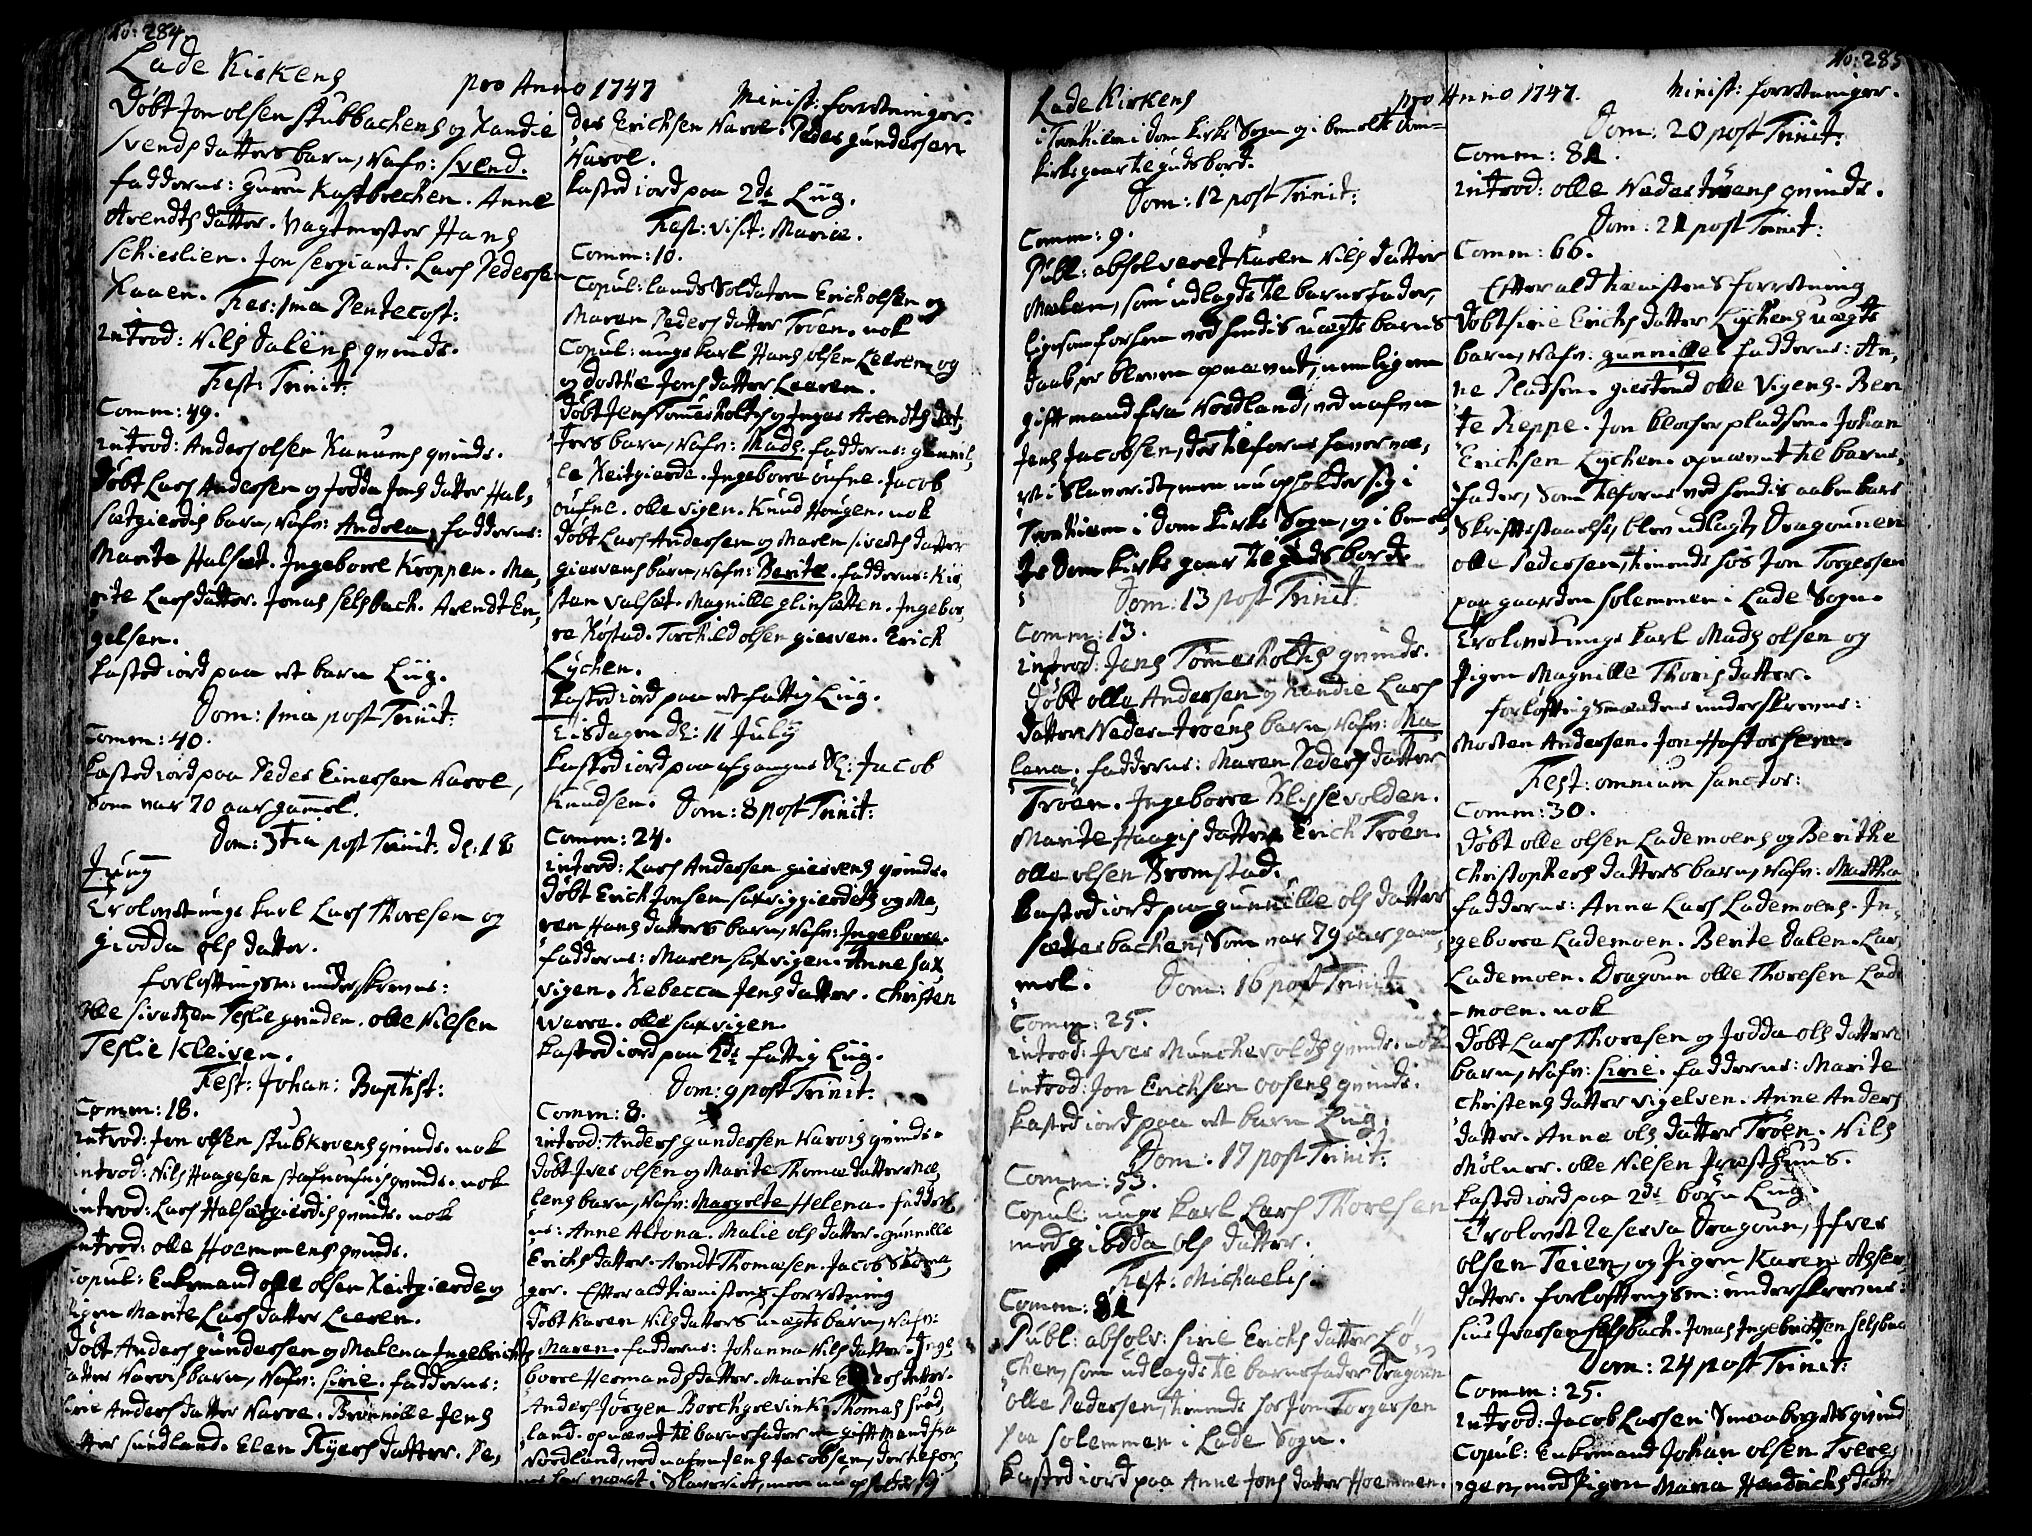 No: 284.
Lade Kirkens
pro Anno 1747
Minist: forretninger.
Døbt Jon olsen Stubbachens og Randie
Svends datters barn, Nafn: Svend.
fadderne: Guru Kastbrechen. Anne
Arendts datter. Vagtmester Hans
Schieslien. Jon sergiant. Lars Pedersen
Fer: 1ma Pentecost:
introd: Nils Dalens qvinde.
Fest: Trinit:
Comm: 49.
introd: Anders olsen Ranums qvinde.
Døbt Lars Andersen og Jodda Jons datter Hal-
sætgierdis barn, Nafn: Andrea, fadderne:
Marite Halset. Ingeborre Kroppen. Ma-
rite Larsdatter. Jonas Selsbach. Arendt En-
gelsen.
kasted iord paa et barn Liig.
Dom: 1ma post Trinit:
Comm: 40.
kasted iord paa Peder Einersen Harvel,
som var 70 aar gammel.
Dom: 3tia post Trinit: d: 18
Juny
Trolovet unge karl Lars Thoresen og
giodda ols datter.
forloftningsm: underskrevne:
Olle Sivertsen Teslie grinden. olle Nilsen
Teslie Kleiven.
Fest: Johan: Baptist:
Comm: 18.
introd: Jon olsen Stubkroens qvinde. nok
introd: Nils Haagesen qvinde. nok
introd: Lars Halsetgierdis qvinde. nok
introd: olle Hoemmens qvinde.
Copul: Enkemand olle olsen Reitgierde og
Pigen Marite Lars datter Leeren.
Døbt Anders gundersen og Malena Ingebrichts
datter barn, Nafn: Sirie. fadderne:
Sirie Anders datter Harre. Brønnille Jens
datter Sundland. Elen datter. Pe-
der Erichsen Harvel. Peder gundersen
Harvel.
kasted iord paa 2de Liig.
Fest: visit: Mariæ.
Comm: 10.
Copul: lands Soldaten Erich olsen og
Maren Peders datter Troen. nok
Copul: unge karl Hans olsen Leeren og
og dorthe Jons datter Leeren.
Døbt Jens Tommesholts og Inger Arendts dat-
ters barn, Nafn: Mads. fadderne: gunnil-
le Reitgierde. Ingeborre oufne. Jacob
oufne. olle vigen. Knud Hougen. nok
Døbt Lars Andersen og Maren siverts datter
giervens barn, Nafn: Berite. fadderne: Kir-
sten valset. Magnille glinsetten. Ingebor-
re Rostad. Torchild olsen gierven. Erich
Lychen.
kasted iord paa et fattig Liig.
Tisdagen d: 11 July
kasted iord paa afgangne Sl: Jacob
Knudsen. Dom: 8 post Trinit:
Comm: 24.
introd: Lars Andersen giervens qvinde.
Døbt Erich Jonsen og Ma-
ren Hans datters barn, Nafn: Ingeborre.
fadderne: Maren saxvigen. Anne sax-
vigen. Rebecca Jens datter. Christen
Warre. olle saxvigen.
kasted iord paa 2de fattig Liig.
Dom: 9 post Trinit:
Comm: 8.
introd: Anders gundersen Harvis qvinde.
Døbt Iver olsen og Marite Thomæ datter Mæ-
lens barn, Nafn: Margrete Helena. fadder-
ne: Anne Altona. Malie ols datter. gunnille
Erichs datter. Arndt Thomæsen. Jacob Skoma-
ger. Efter altienistens forretning
Døbt Karen Nils datters uægte barn, Nafn:
Maren. fadderne: Johanna Nils datter. Inge-
borre Hermands datter. Marite datter.
Anders Jørgen Borchgrevink. Thomas Sund-
land. opnævnt til barnefader en gift mand fra
Nordland, ved nafn Jens Jacobsen, der tilfor-
ne har været i Slaveriet, men nu opholder sig
No: 285
Lade Kirkens
pro Anno 1747.
Minist: forretninger.
i Tronhiem i dom kirke Sogn og i bemelte dom-
kirke gaar til guds bord.
Dom: 12 post Trinit:
Comm: 9.
Publ: absolveret Karen Nils datter
Mælen, som udlagde til barnefader,
ligesom forhen ved hendis uægte barns
daab, er bleven opnævnt, nemlig en
gift mand fra Nordland, ved nafn
Jens Jacobsen, der tilforne haver væ-
ret i Slaveriet, men nu opholder sig i
Tronhiem i dom kirke Sogn, og i bemel-
te dom kirke gaar til guds bord.
Dom: 13 post Trinit:
Comm: 13.
introd: Jens Tommesholts qvinde.
Døbt olle Andersen og Randie Lars
datter Neder-troens barn, Nafn: Ma
lena. fadderne: Maren Peders datter
Troen. Ingeborre Ulsevolden.
Marite Haagis datter. Erich Troen.
olle olsen Bromstad.
kasted iord paa gunnille ols datter
sætterbachen, som var 79 aar gam-
mel. Dom: 16 post Trinit:
Comm: 25.
introd: Iver Munchevolds qvinde. nok
introd: Jon Erichsen oosens qvinde.
kasted iord paa et barn Liig.
Dom: 17 post Trinit:
Comm: 53.
Copul: unge karl Lars Thoresen
med giødda ols datter.
Fest: Michaelis
Comm: 81
Publ: absolv: sirie Erichs datter Ly-
chen, som udlagde til barnefader Dragoun
olle Pedersen, tienende hos Jon Torgersen
paa Solemmen i Lade Sogn.
kasted iord paa Anne Jons datter Hoemmen.
Dom: 20 post Trinit:
Comm: 81.
introd: olle Nedertrøens qvinde.
Dom: 21 post Trinit:
Comm: 66.
Efter altienistens forretning
Døbt sirie Erichs datter Lychens uægte
barn, Nafn: gunnille fadderne: An-
ne Pladsen. giertrud olle vigens. Beri
te Reppe. Jon klocherpladsen. Johan
Erichsen Lychen. opnævnt til barne-
fader, som tilforne ved hendis aabenbare
Skriftestaaelse, blev udlagt, Dragounen
olle Pedersen, tienende hos Jon Torgersen
paa gaarden solemmen i Lade Sogn.
Trolovet unge karl Mads olsen og
Pigen Magnille Thoris datter.
forloftningsmændene underskrevne:
Morten Andersen. Jon Hastorsen.
Fest: omnium sanctor:
Comm: 30.
Døbt olle olsen Lademoens og Berithe
Christophers datters barn, Nafn: Martha
fadderne: Anne Lars Lademoens. In-
geborre Lademoen. Berite dalen. Lars
Lademoen. Dragoun olle Thoresen Lade
-moen. nok
Døbt Lars Thoresen og Jodda ols datters
barn, Nafn: Sirie. fadderne: Marite
Christens datter vigelven. Anne Anders
datter. Anne ols datter Troen. Nils
Mølner. olle Nilsen Præsthuus.
kasted iord paa 2de børn Liig.
Trolovet Reserva Dragoun, Ifver
olsen Teien, og Pigen Karen Olser
datter. forloftningsm: underskrevne:
Siur Iversen Selsbach. Jonas Ingebrigtsen Selsbac
Dom: 24 post Trinit:
Comm: 25.
introd: Jacob Larsen Smaabergets qvind
Copul: Enkemand Johan olsen Tvere-
gen, med Pigen Maria Hendrichs datter